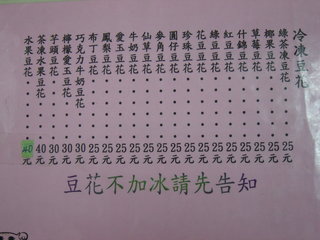 冷凍豆花
綠茶凍豆花......25元
椰果豆花......25元
草莓豆花......25元
什錦豆花......25元
紅豆豆花......25元
綠豆豆花......25元
花豆豆花......25元
珍珠豆花......25元
圓仔豆花......25元
麥角豆花......25元
仙草豆花......25元
牛奶豆花......25元
愛玉豆花......25元
鳳梨豆花......25元
布丁豆花......25元
巧克力牛奶豆花...30元
檸檬愛玉豆花....30元
芋頭豆花......30元
茶凍水果豆花....40元
水果豆花......40元
豆花不加冰請先告知